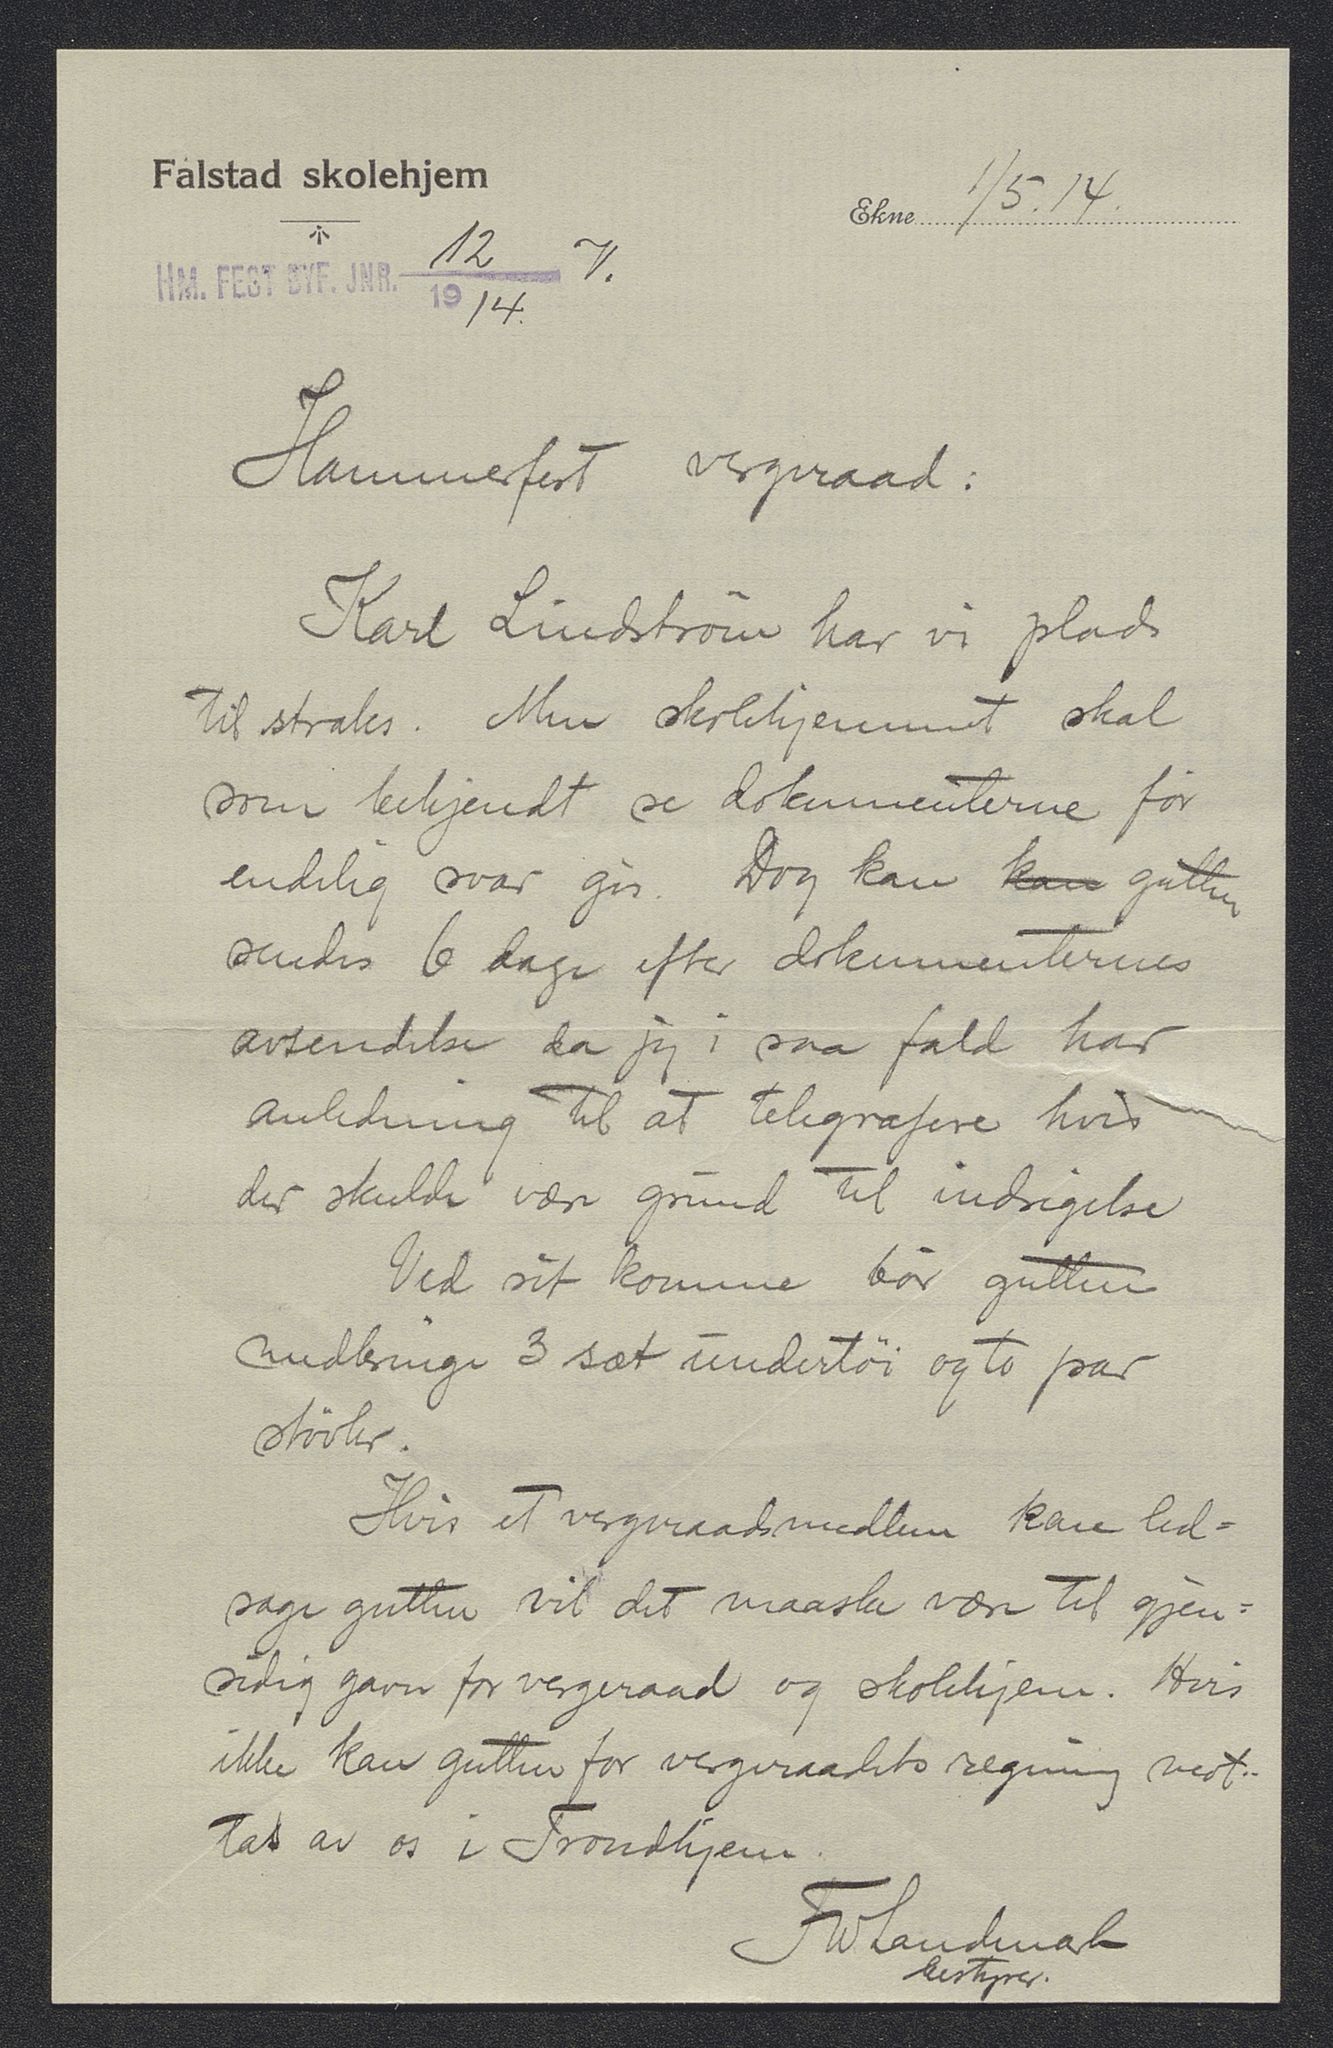 Falstad skolehjem
Ekne 1/5.14.
HM.FEST BYF. JNR. 12 V.
19 14.
Hammerfest vergeraad:
Karl Lindström har vi plads
til straks. Men skolehjemmet skal
som bekjendt se dokumenterne för
endelig svar gis. Dog kan kan gutten
sendes 6 dage efter dokumenternes
avsendelse da jeg i saa fald har
anledning til at telegrafere hvis
der skulde være grund til indsigelse
Ved sit komme bör gutten
medbringe 3 sæt undertöi og to par
stövler.
Hvis et vergeraadsmedlem kan led=
sage gutten vil det maaske være til gjen=
sidig gavn for vergeraad og skolehjem. Hvis
ikke kan gutten for vergeraadets regning mot-
tas av os i Trondhjem.
FW Landmark
bestyrer.